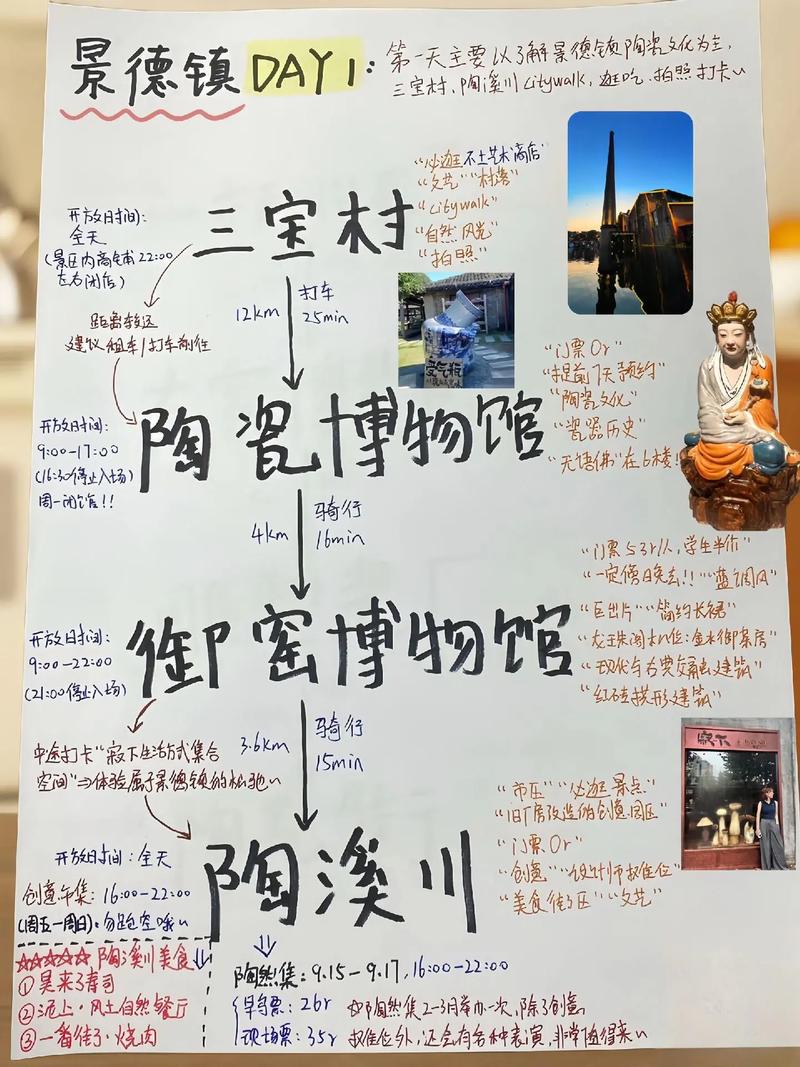 景德镇 DAY1:
第一天主要以了解景德镇陶瓷文化为主,
三宝村、陶溪川citywalk,逛吃、拍照打卡~
"必逛不土艺术商店"
"文艺""村落"
"citywalk"
"自然风光"
"拍照"
三宝村
开放时间:
全天
(景区内商铺22:00
左右闭店)
12km
打车
25min
距离较远
建议租车/打车前往
受气瓶
陶瓷博物馆
开放时间:
9:00-17:00
(16:30停止入场)
周一闭馆!!
"门票0r"
"提前7天预约"
"陶瓷文化"
"瓷器历史"
"无语佛"在6楼!
4km
骑行
16min
御窑博物馆
开放时间:
9:00-22:00
(21:00停止入场)
"门票53r/人,学生半价"
"一定傍晚去!!""蓝调风"
"巨出片""简约长裙"
"龙珠阁机位:金水御茶房"
"现代与古典交融建筑"
"红砖拱形建筑"
3.6km
骑行
15min
中途打卡"寂下生活方式集合
空间"⇒体验属于景德镇的松弛~
寂下
陶溪川
开放时间:全天
创意市集:16:00-22:00
(周五-周日):勿跑空哦~
"市区""必逛景点"
"旧厂房改造的创意园区"
"门票0r"
"创意""设计师摊位"
"美食街区""文艺"
☆☆☆☆☆陶溪川美食
①昊来了寿司
②泥上·风土自然餐厅
③一番街·烧肉
陶然集:9.15-9.17,16:00-22:00
早鸟票:26r
现场票:35r
陶然集2-3月举办一次,除了创意
摊位外,还会有各种表演,非常值得来~